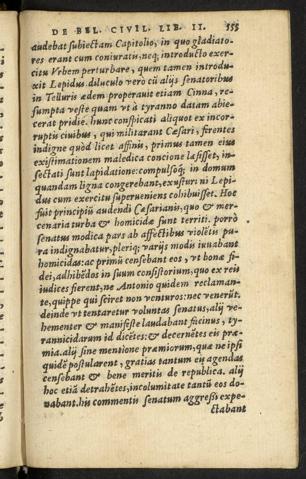 DE BEL. CIVIL. LIB. II. 355
audebat subiectam Capitolio, in quo gladiato-
res erant cum coniuratis: neq; introducto exer-
citu Vrbem perturbare, quem tamen introdu-
xit Lepidus. diluculo verò cū alijs senatoribus
in Telluris ædem properauit etiam Cinna, re-
sumpta veste quam vt à tyranno datam abie-
cerat pridie. hunc conspicati aliquot ex incor-
ruptis ciuibus, qui militarant Cæsari, ferentes
indigne quòd licet affinis, primus tamen eius
existimationem maledica concione læsisset, in-
sectati sunt lapidatione: compulsōq; in domum
quandam ligna congerebant, exusturi ni Lepi-
dus cum exercitu superueniens cohibuisset. Hoc
fuit principiū audendi Cæsarianis, quo & mer-
cenaria turba & homicidæ sunt territi. porrò
senatus modica pars ab affectibus violētis pu-
ra indignabatur, pleriq; varijs modis iuuabant
homicidas: ac primū censebant eos, vt bonæ fi-
dei, adhibēdos in suum consistorium, quo ex reis
iudices fierent, ne Antonio quidem reclaman-
te, quippe qui sciret non venturos: nec venerūt.
deinde vt tentaretur voluntas senatus, alij ve-
hementer & manifeste laudabant facinus, ty-
rannicidarum id dicētes: & decernētes eis præ-
mia. alij sine mentione præmiorum, quæ ne ipsi
quidē postularent, gratias tantum eis agendas
censebant & bene meritis de republica. alij
hoc etiā detrahētes, incolumitate tantū eos do-
nabant. his commentis senatum aggressi expe-
ctabant